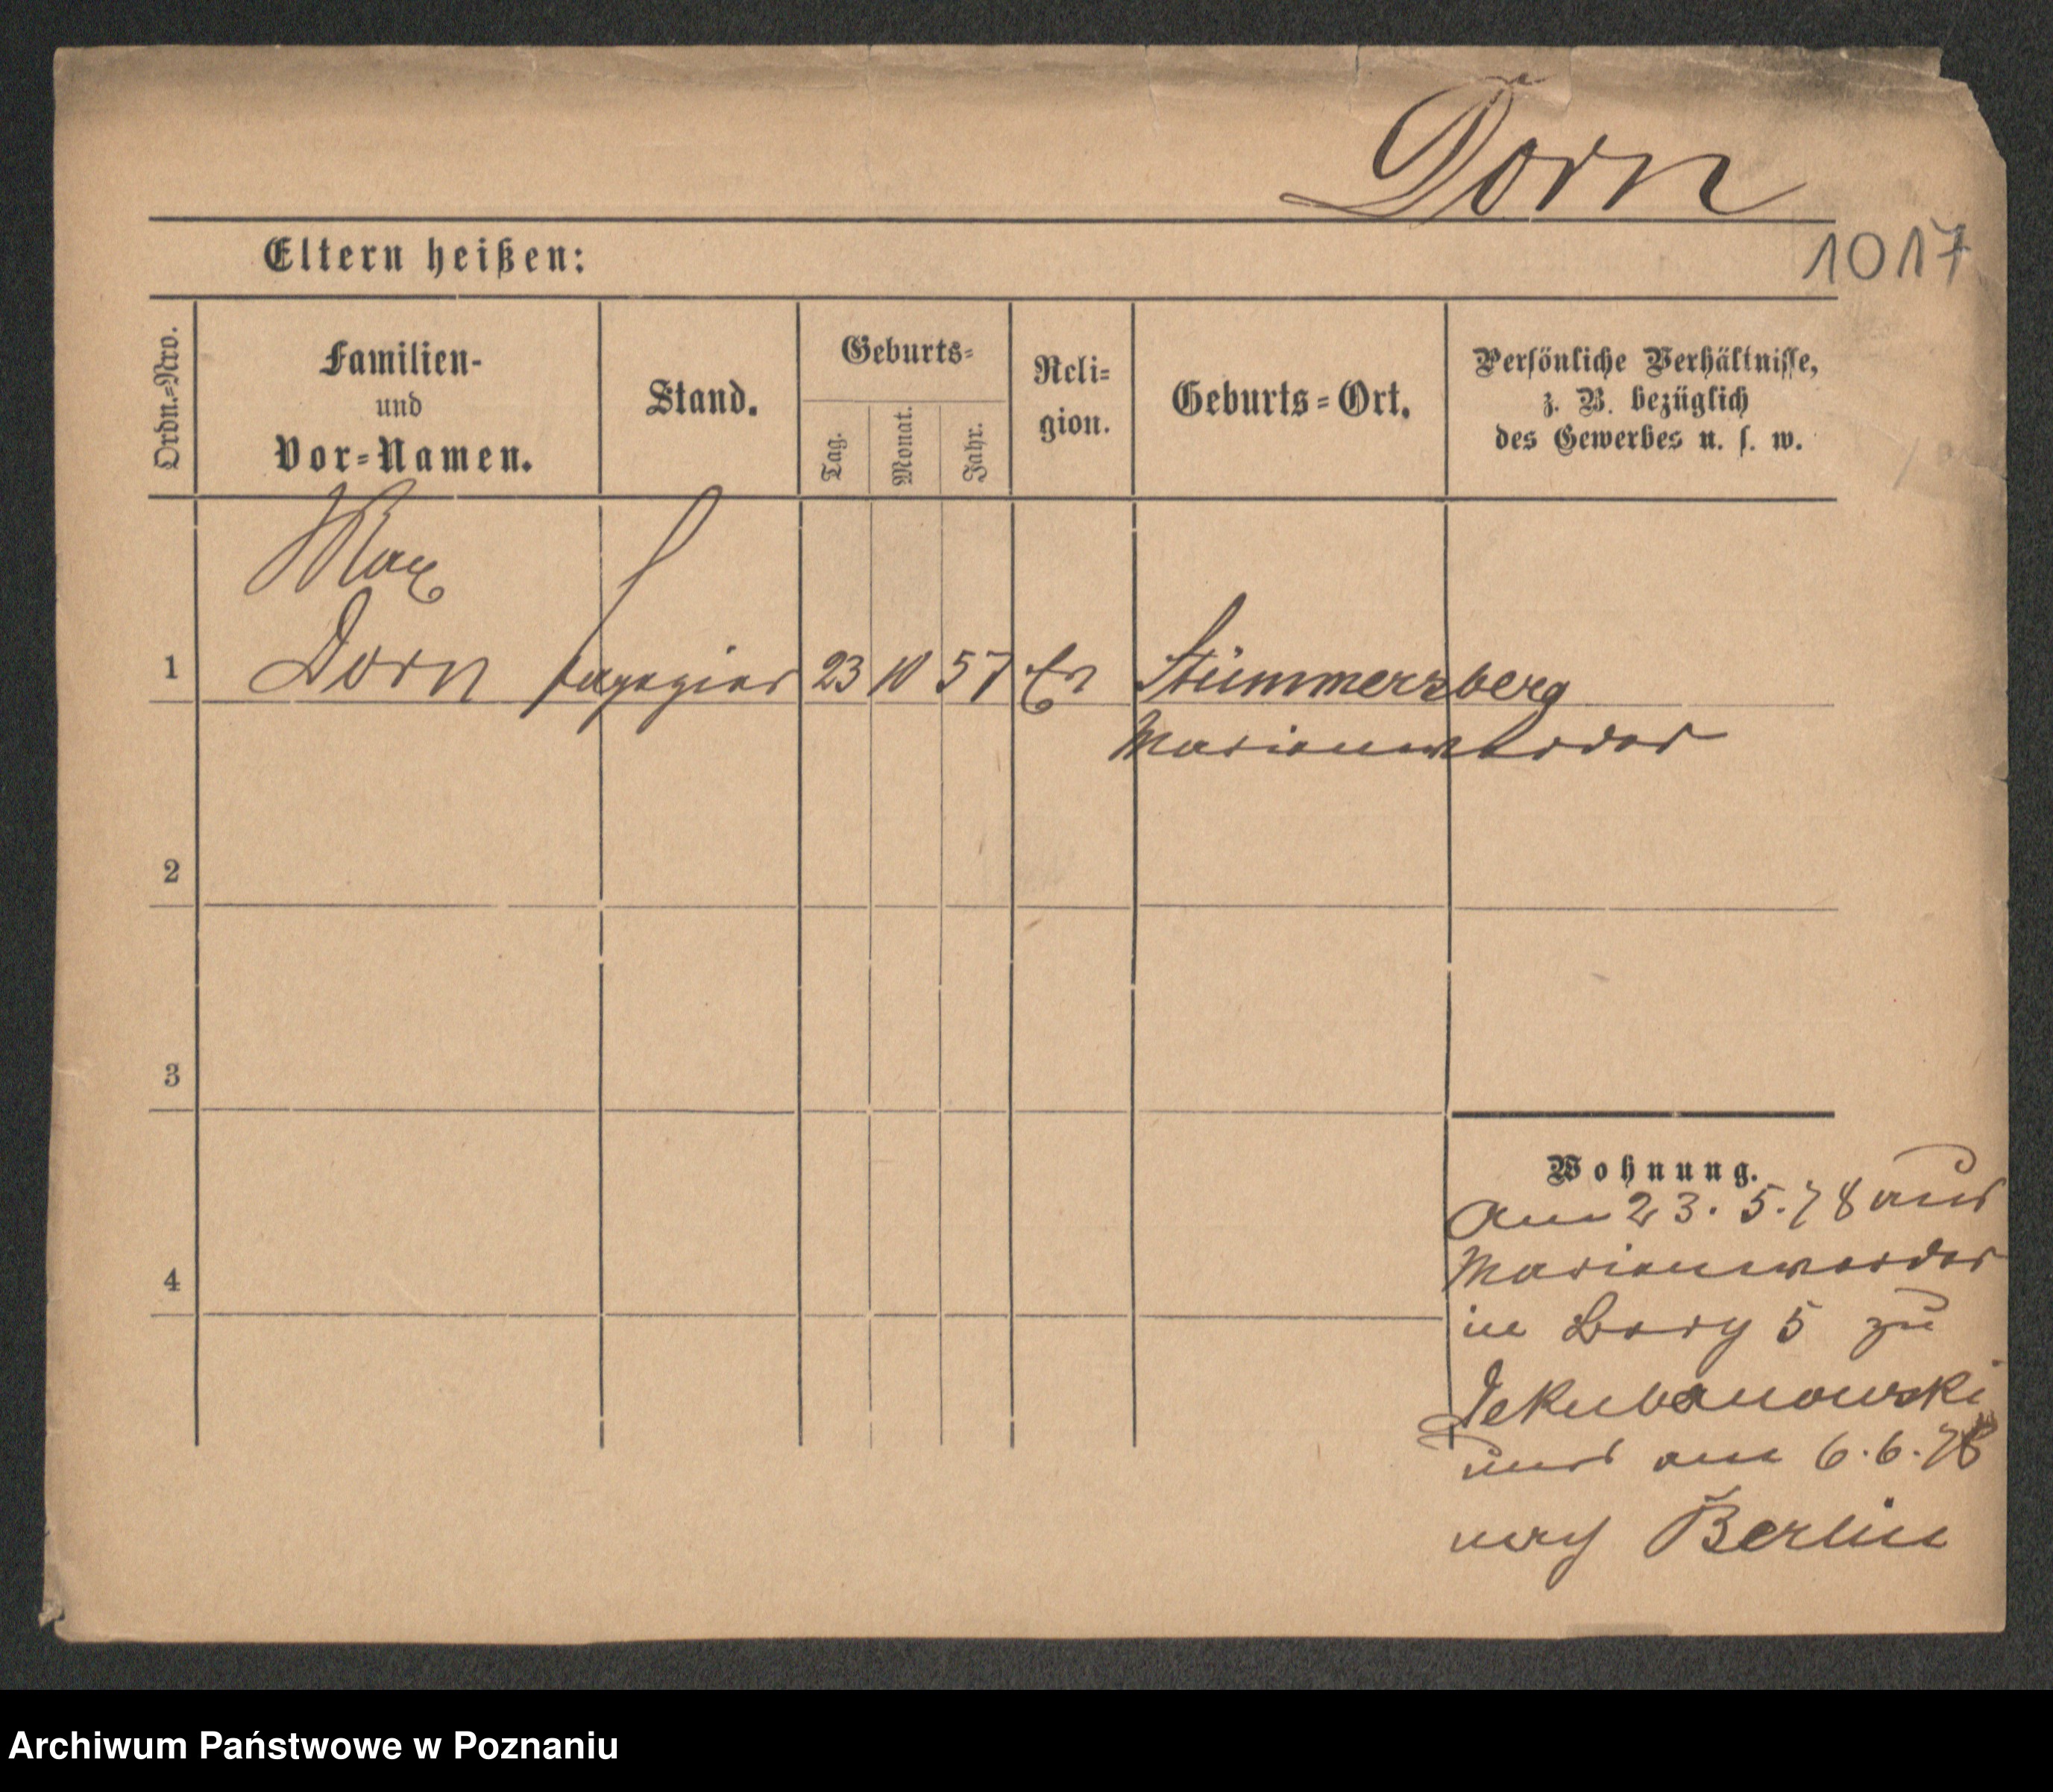 Dorn
1017
Eltern heißen:
Ordn.-Nro.
Familien-
und
Vor-Namen.
Stand.
Geburts-
Tag.
Monat.
Jahr.
Reli-
gion.
Geburts-Ort.
Persönliche Verhältnisse,
z. B. bezüglich
des Gewerbes u. s. w.
Max
1 Dorn 23 10 57 Ev Stümmersberg
Marienwerder
2
3
4
Wohnung.
Am 23. 5. 78 aus
Marienwerder
in Berg 5 zu
und am 6. 6. 78
nach Berlin
Archiwum Państwowe w Poznaniu